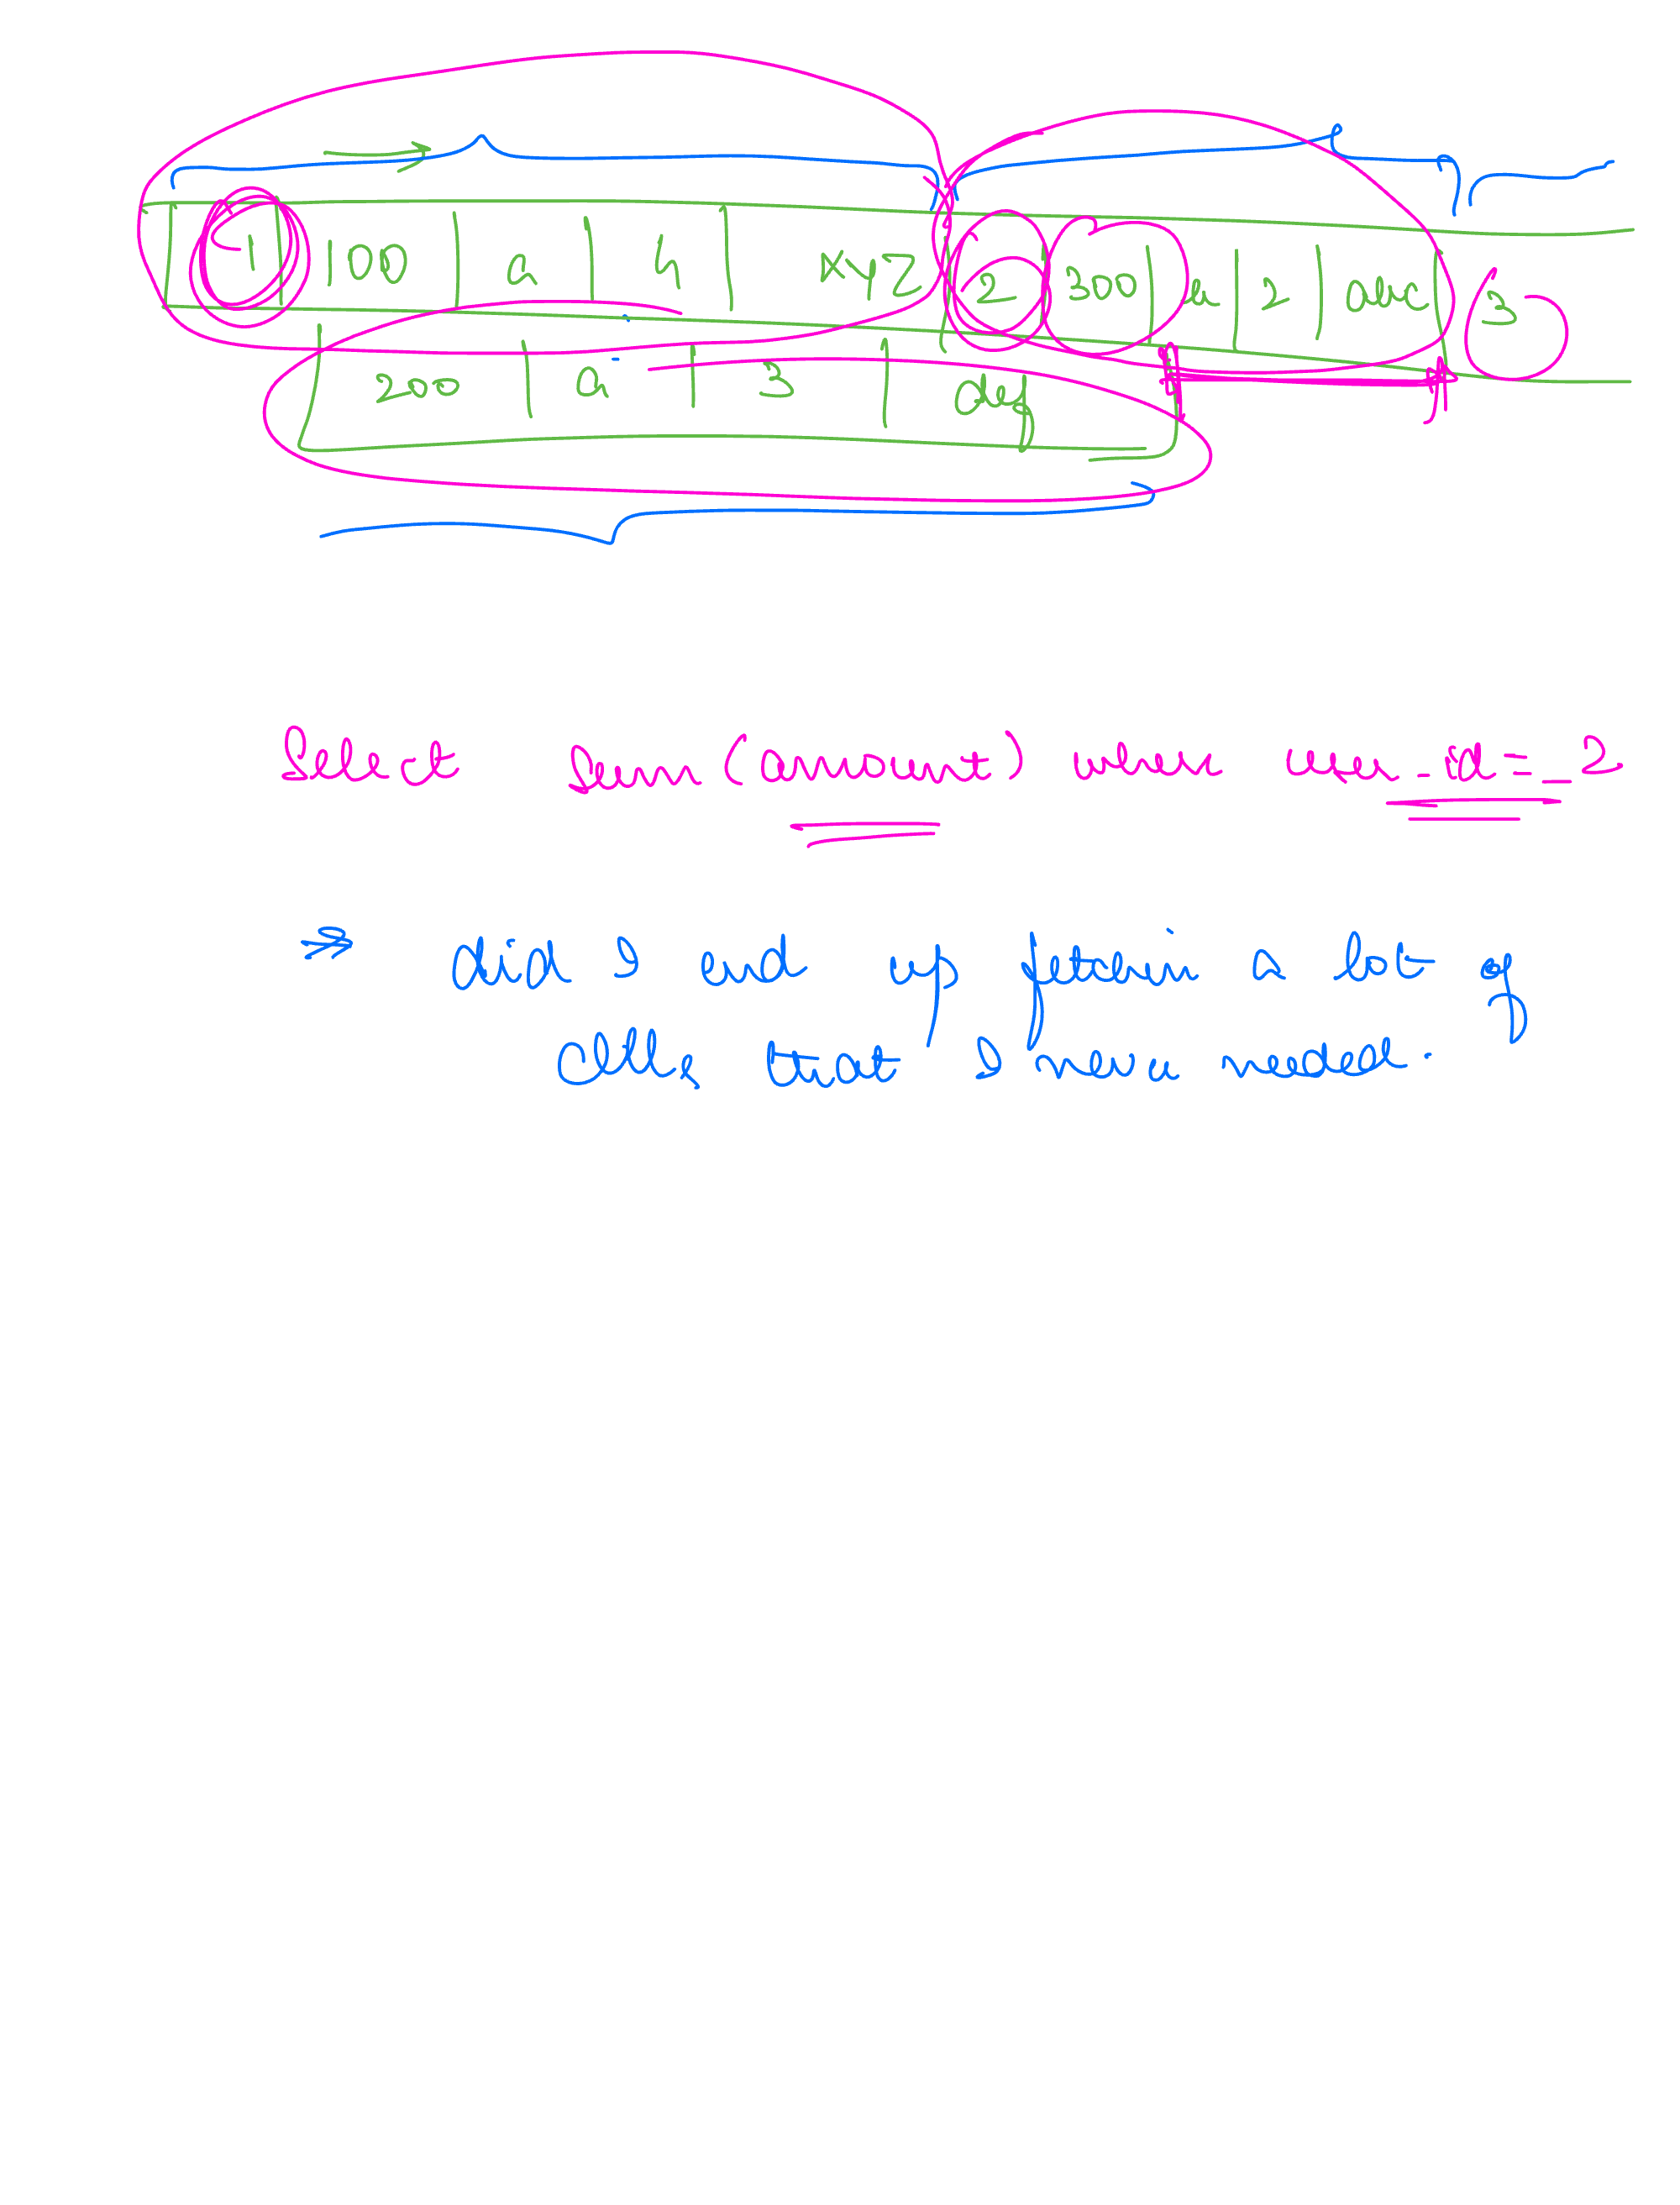 1 | 100 | a | 4 | xyz | 2 | 300 | a | 2 | abc | 3
200 | a | 3 | def
Select Sum (amount) where user_id = 2
⇒ did I end up fetchin a lot of
cells that I never needed.